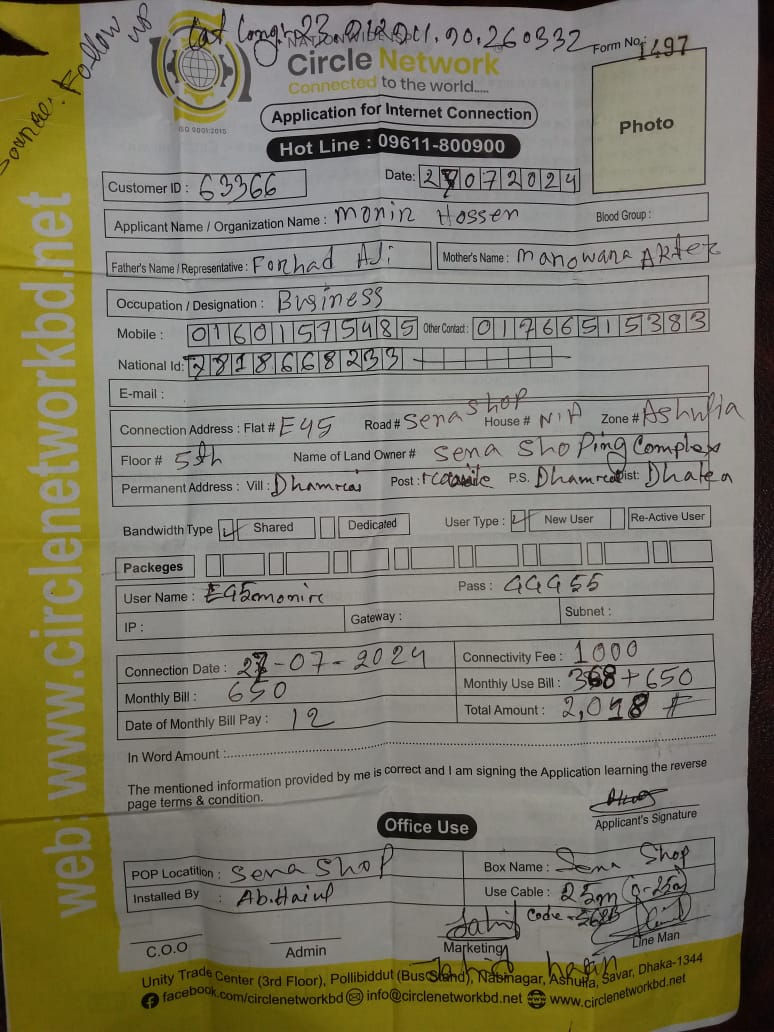 Lat Long: 23.912911.90.260332
Source: Follow up
NATIONWIDE ISP
Circle Network
Connected to the world.....
ISO 9001:2015
Form No: 1497
Application for Internet Connection
Hot Line : 09611-800900
Photo
Customer ID : 63366 Date: 27072024
Applicant Name / Organization Name : Monir Hossen Blood Group :
Father's Name / Representative : Forhad Ali Mother's Name : Manowara Akter
Occupation / Designation : Business
Mobile : 01601575485 Other Contact : 01766515383
National Id: 7818668233
E-mail :
Connection Address : Flat # E45 Road # Sena Shop House # N/A Zone # Ashulia
Floor # 5th Name of Land Owner # Sena Shoping Complex
Permanent Address : Vill : Dhamrai Post : P.S. Dhamrai Dist: Dhaka
Bandwidth Type Shared Dedicated User Type : New User Re-Active User
Packeges
User Name : E45monir Pass : 44455
IP : Gateway : Subnet :
Connection Date : 27-07-2024 Connectivity Fee : 1000
Monthly Bill : 650 Monthly Use Bill : 368+650
Date of Monthly Bill Pay : 12 Total Amount : 2,018 #
In Word Amount :
The mentioned information provided by me is correct and I am signing the Application learning the reverse
page terms & condition.
Applicant's Signature
Office Use
POP Locatition : Sena Shop Box Name : Sena Shop
Installed By : Ab. Use Cable : 25m (0-25)
Code -
C.O.O Admin Marketing Line Man
Jahid hasan
Unity Trade Center (3rd Floor), Pollibiddut (Bus Stand), Nabinagar, Ashulia, Savar, Dhaka-1344
facebook.com/circlenetworkbd info@circlenetworkbd.net www.circlenetworkbd.net
web: www.circlenetworkbd.net